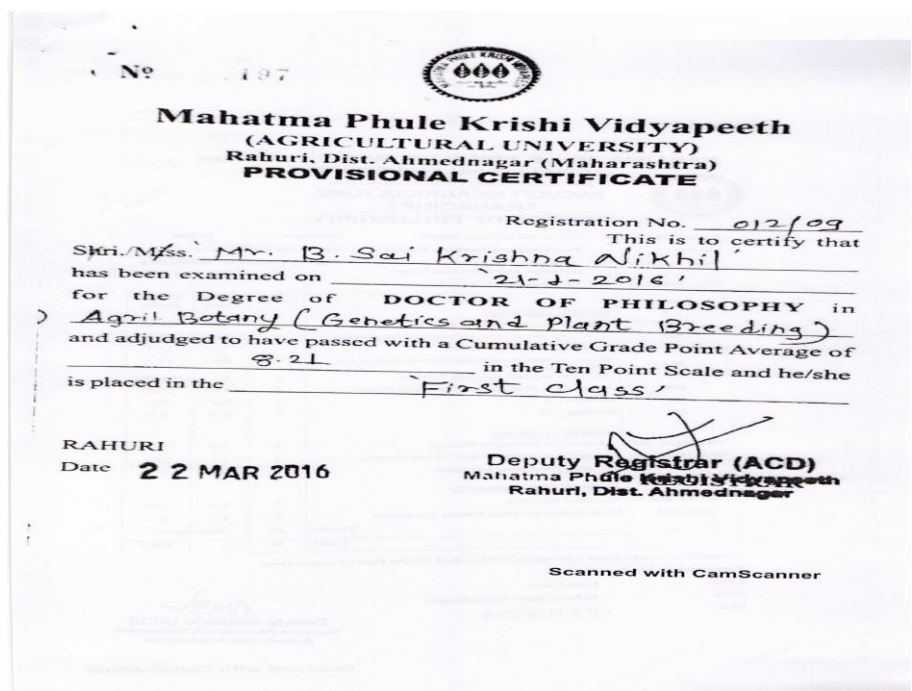 Nº 197
Mahatma Phule Krishi Vidyapeeth
(AGRICULTURAL UNIVERSITY)
Rahuri, Dist. Ahmednagar (Maharashtra)
PROVISIONAL CERTIFICATE
Registration No. 012/09
This is to certify that
Shri./Miss. Mr. B. Sai Krishna Nikhil
has been examined on '21-1-2016'
for the Degree of DOCTOR OF PHILOSOPHY in
Agril Botany (Genetics and Plant Breeding)
and adjudged to have passed with a Cumulative Grade Point Average of
8.21 in the Ten Point Scale and he/she
is placed in the 'First class'
RAHURI
Date 22 MAR 2016
Deputy Registrar (ACD)
Mahatma Phule Krishi Vidyapeeth
Rahuri, Dist. Ahmednagar
Scanned with CamScanner